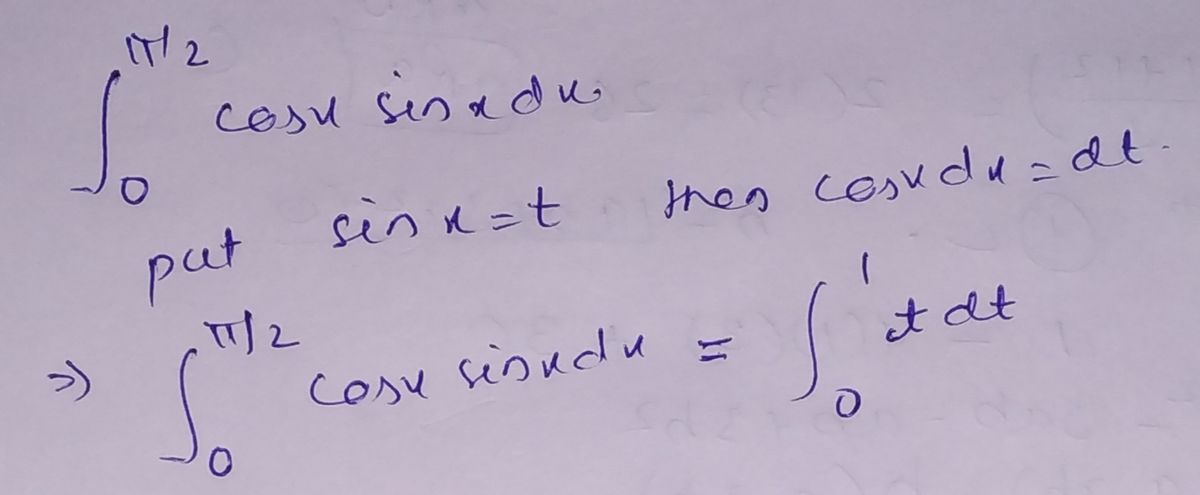 ∫₀^(π/2) cosx sinx dx
put sinx=t then cosx dx = dt.
⇒ ∫₀^(π/2) cosx sinx dx = ∫₀^1 t dt